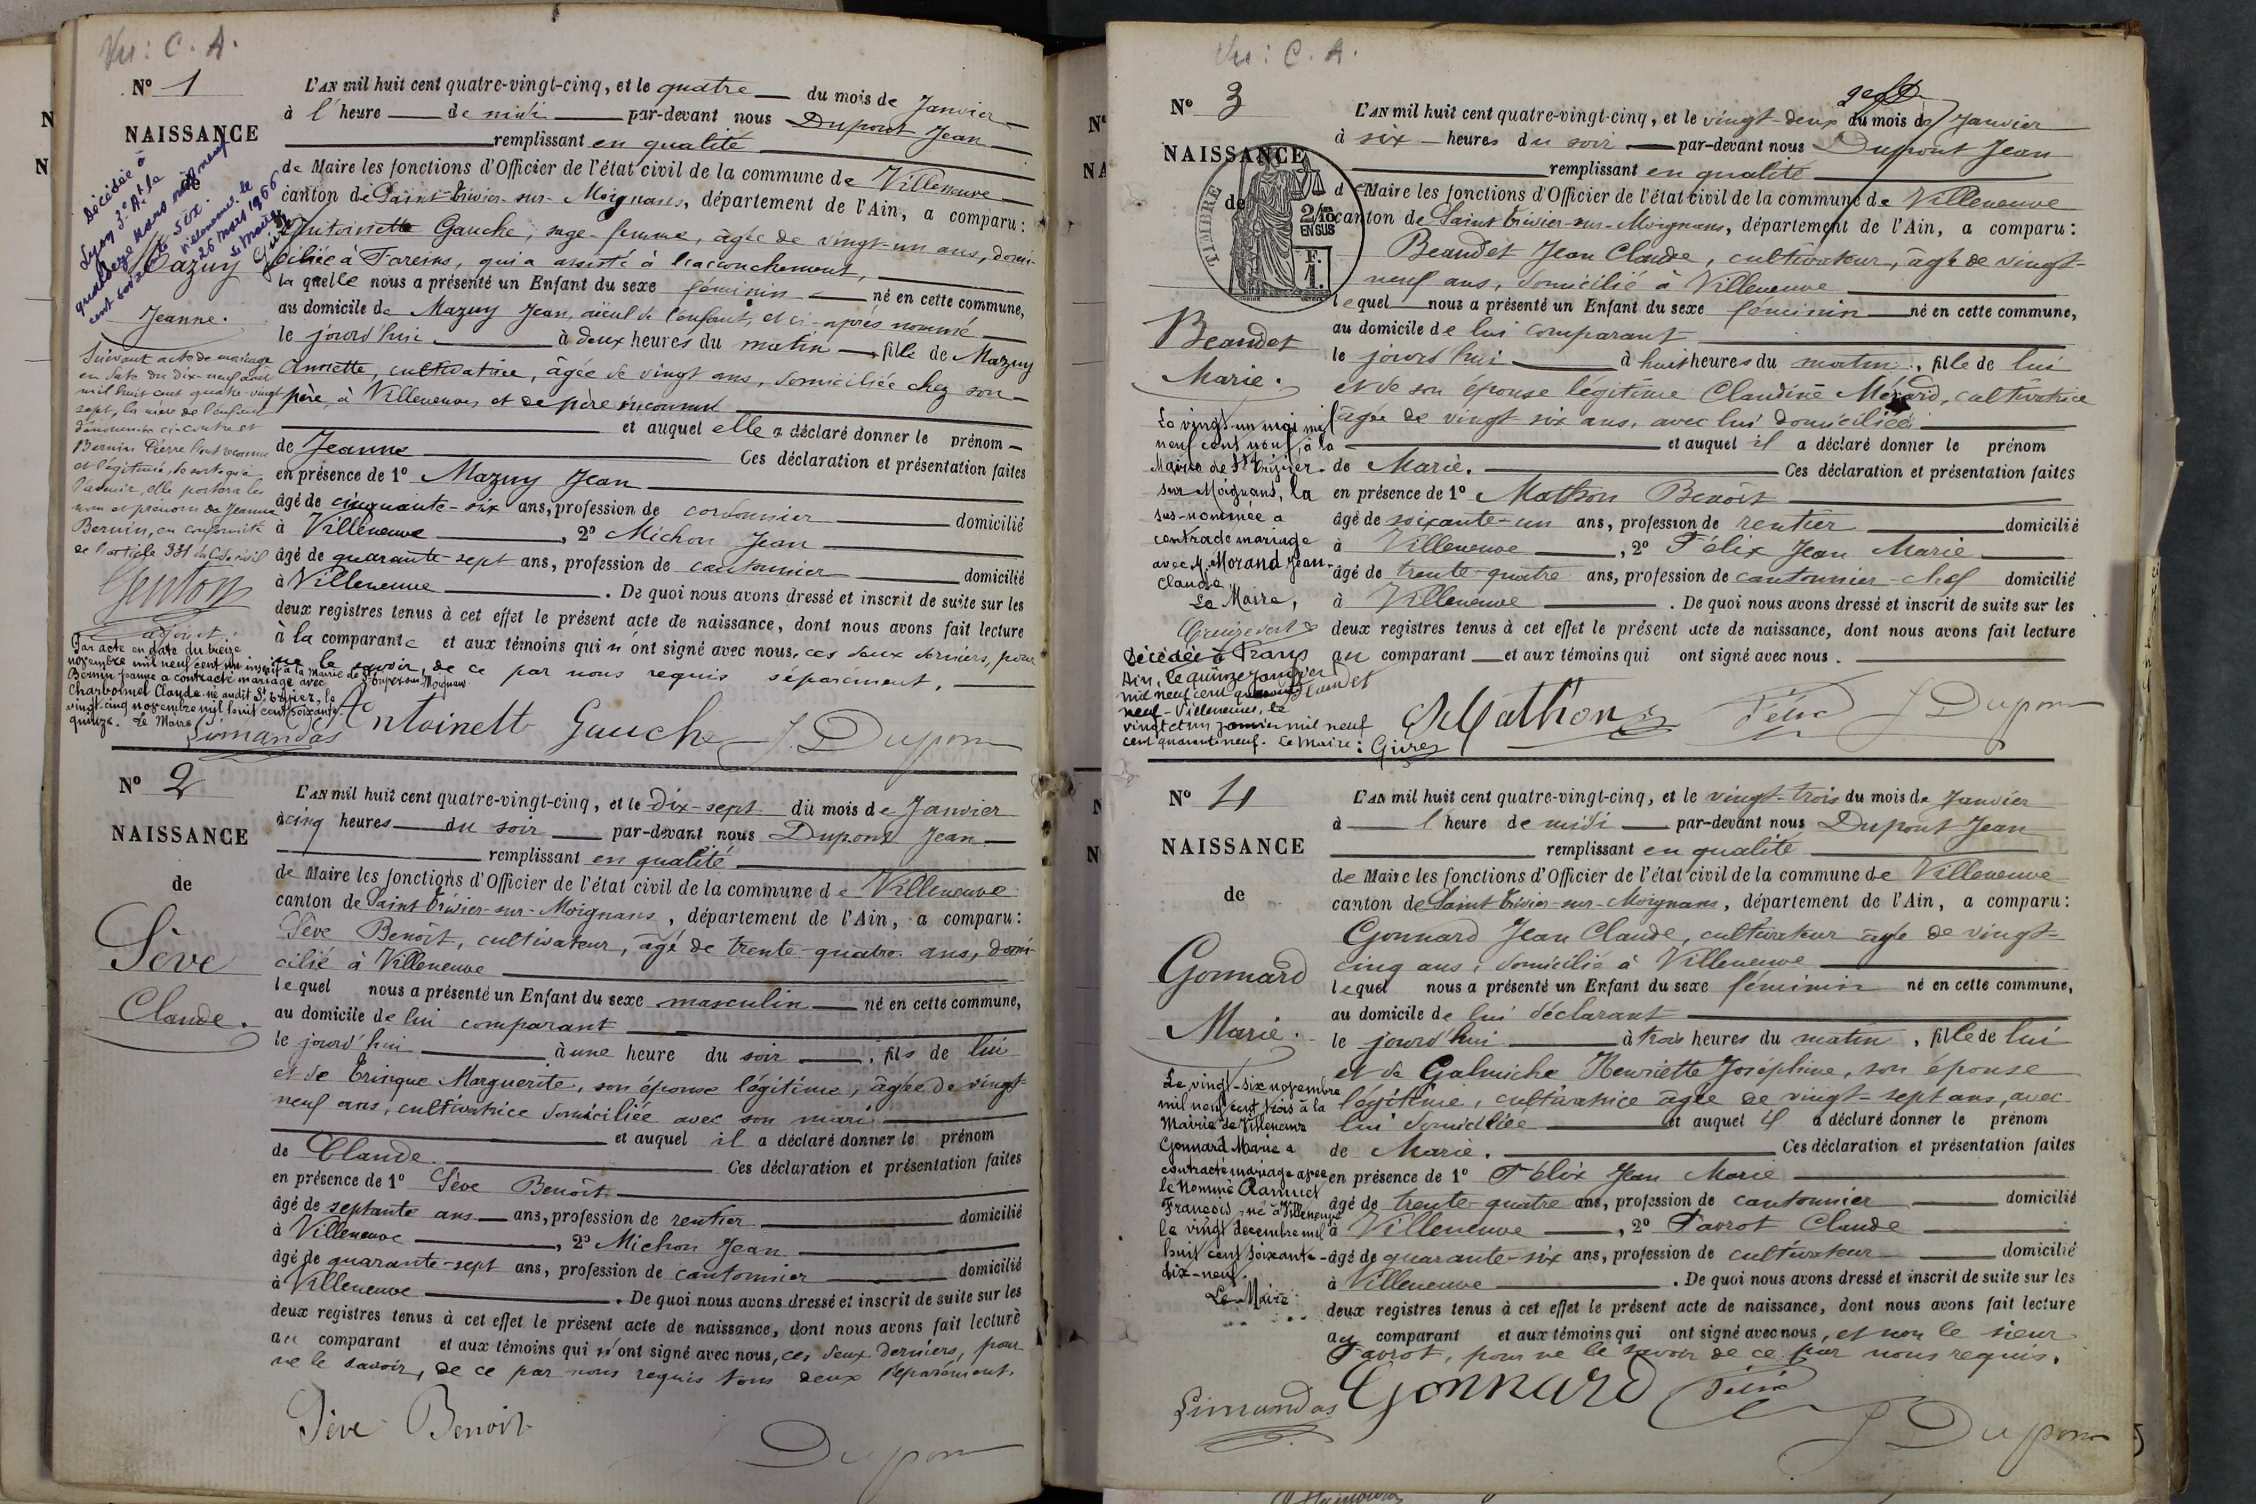 Vu : C. A.
N° 1
NAISSANCE
de
Mazuy
Jeanne.
Décédée à
Lyon 3e At le
quatorze mars mil neuf
cent soixante six.
Villeneuve le
26 mars 1966
Le Maire
Suivant acte de mariage
en date du dix-neuf août
mil huit cent quatre-vingt
sept, la mère de l'enfant
dénommée ci-contre et
Bernin Pierre l'ont reconnue
et légitimée, de sorte qu'à
l'avenir, elle portera les
nom et prénom de Jeanne
Bernin, en conformité
de l'article 331 du Code civil
Genton
adjoint.
Par acte en date du treize
novembre mil neuf cent un inscrit à la Mairie de
Bernin Jeanne a contracté mariage avec
Charbonnet Claude né audit St Trivier, le
vingt-cinq novembre mil huit cent soixante
quinze. Le Maire
Limandas
L'AN mil huit cent quatre-vingt-cinq, et le quatre du mois de Janvier
à l'heure de midi par-devant nous Dupont Jean
remplissant en qualité
de Maire les fonctions d'Officier de l'état civil de la commune de Villeneuve
canton de Saint-Trivier-sur-Moignans, département de l'Ain, a comparu :
Antoinette Gauche, sage-femme, âgée de vingt-un ans, domi-
ciliée à Fareins, qui a assisté à l'accouchement,
la quelle nous a présenté un Enfant du sexe féminin né en cette commune,
au domicile de Mazuy Jean, aïeul de l'enfant, et ci-après nommé
le jourd'hui à deux heures du matin, fille de Mazuy
Annette, cultivatrice, âgée de vingt ans, domiciliée chez son
père, à Villeneuve, et de père inconnu
et auquel elle a déclaré donner le prénom
de Jeanne Ces déclaration et présentation faites
en présence de 1° Mazuy Jean
âgé de cinquante-six ans, profession de cordonnier domicilié
à Villeneuve, 2° Michon Jean
âgé de quarante-sept ans, profession de cantonnier domicilié
à Villeneuve. De quoi nous avons dressé et inscrit de suite sur les
deux registres tenus à cet effet le présent acte de naissance, dont nous avons fait lecture
à la comparante et aux témoins qui n'ont signé avec nous, ces deux derniers, pour
ne le savoir, de ce par nous requis séparément.
Antoinett Gauche J. Dupont
N° 2
NAISSANCE
de
Sève
Claude.
L'AN mil huit cent quatre-vingt-cinq, et le Dix-sept du mois de Janvier
à cinq heures du soir par-devant nous Dupont Jean
remplissant en qualité
de Maire les fonctions d'Officier de l'état civil de la commune de Villeneuve
canton de Saint Trivier-sur-Moignans, département de l'Ain, a comparu :
Sève Benoît, cultivateur, âgé de trente-quatre ans, domi-
cilié à Villeneuve
lequel nous a présenté un Enfant du sexe masculin né en cette commune,
au domicile de lui comparant
le jourd'hui à une heure du soir, fils de lui
et de Trinque Marguerite, son épouse légitime, âgée de vingt-
neuf ans, cultivatrice domiciliée avec son mari
et auquel il a déclaré donner le prénom
de Claude. Ces déclaration et présentation faites
en présence de 1° Sève Benoît
âgé de septante ans ans, profession de rentier domicilié
à Villeneuve, 2° Michon Jean
âgé de quarante-sept ans, profession de cantonnier domicilié
à Villeneuve. De quoi nous avons dressé et inscrit de suite sur les
deux registres tenus à cet effet le présent acte de naissance, dont nous avons fait lecture
au comparant et aux témoins qui n'ont signé avec nous, ces deux derniers, pour
ne le savoir, de ce par nous requis tous deux séparément.
Sève Benoit
Dupont
Vu : C. A.
N° 3
NAISSANCE
de
TIMBRE
2/10 EN SUS
F. 1.
Beaudet
Marie.
Le vingt-un mai mil
neuf cent neuf, à la
Mairie de St Trivier-
sur Moignans, la
sus-nommée a
contracté mariage
avec M. Morand Jean-
Claude
Le Maire,
Décédée à Frans
Ain, le quinze janvier
mil neuf cent quarante
neuf - Villeneuve, le
vingt et un janvier mil neuf
cent quarante neuf. Le Maire :
L'AN mil huit cent quatre-vingt-cinq, et le vingt-deux du mois de Janvier
à six heures du soir par-devant nous Dupont Jean
remplissant en qualité
de Maire les fonctions d'Officier de l'état civil de la commune de Villeneuve
canton de Saint Trivier-sur-Moignans, département de l'Ain, a comparu :
Beaudet Jean Claude, cultivateur, âgé de vingt-
neuf ans, domicilié à Villeneuve
lequel nous a présenté un Enfant du sexe féminin né en cette commune,
au domicile de lui comparant
le jourd'hui à huit heures du matin, fille de lui
et de son épouse légitime Claudine Mérard, cultivatrice
âgée de vingt six ans, avec lui domiciliée
et auquel il a déclaré donner le prénom
de Marie. Ces déclaration et présentation faites
en présence de 1° Mathon Benoît
âgé de soixante-un ans, profession de rentier domicilié
à Villeneuve, 2° Félix Jean Marie
âgé de trente-quatre ans, profession de cantonnier-chef domicilié
à Villeneuve. De quoi nous avons dressé et inscrit de suite sur les
deux registres tenus à cet effet le présent acte de naissance, dont nous avons fait lecture
au comparant et aux témoins qui ont signé avec nous.
Beaudet Mathon Félix J Dupont
N° 4
NAISSANCE
de
Gonnard
Marie.
Le vingt-six novembre
mil neuf cent trois à la
Mairie de Villeneuve
Gonnard Marie a
contracté mariage avec
le nommé Ramuet
François, né à Villeneuve
le vingt décembre mil
huit cent soixante-
dix-neuf.
Le Maire
Limandas
L'AN mil huit cent quatre-vingt-cinq, et le vingt-trois du mois de Janvier
à l'heure de midi par-devant nous Dupont Jean
remplissant en qualité
de Maire les fonctions d'Officier de l'état civil de la commune de Villeneuve
canton de Saint Trivier-sur-Moignans, département de l'Ain, a comparu :
Gonnard Jean Claude, cultivateur âgé de vingt-
cinq ans, domicilié à Villeneuve
lequel nous a présenté un Enfant du sexe féminin né en cette commune,
au domicile de lui déclarant
le jourd'hui à trois heures du matin, fille de lui
et de Galmiche Henriette Joséphine, son épouse
légitime, cultivatrice âgée de vingt-sept ans, avec
lui domiciliée et auquel il a déclaré donner le prénom
de Marie. Ces déclaration et présentation faites
en présence de 1° Félix Jean Marie
âgé de trente-quatre ans, profession de cantonnier domicilié
à Villeneuve, 2° Favrot Claude
âgé de quarante-six ans, profession de cultivateur domicilié
à Villeneuve. De quoi nous avons dressé et inscrit de suite sur les
deux registres tenus à cet effet le présent acte de naissance, dont nous avons fait lecture
au comparant et aux témoins qui ont signé avec nous, et non le sieur
Favrot, pour ne le savoir de ce par nous requis.
Gonnard Félix
J Dupont